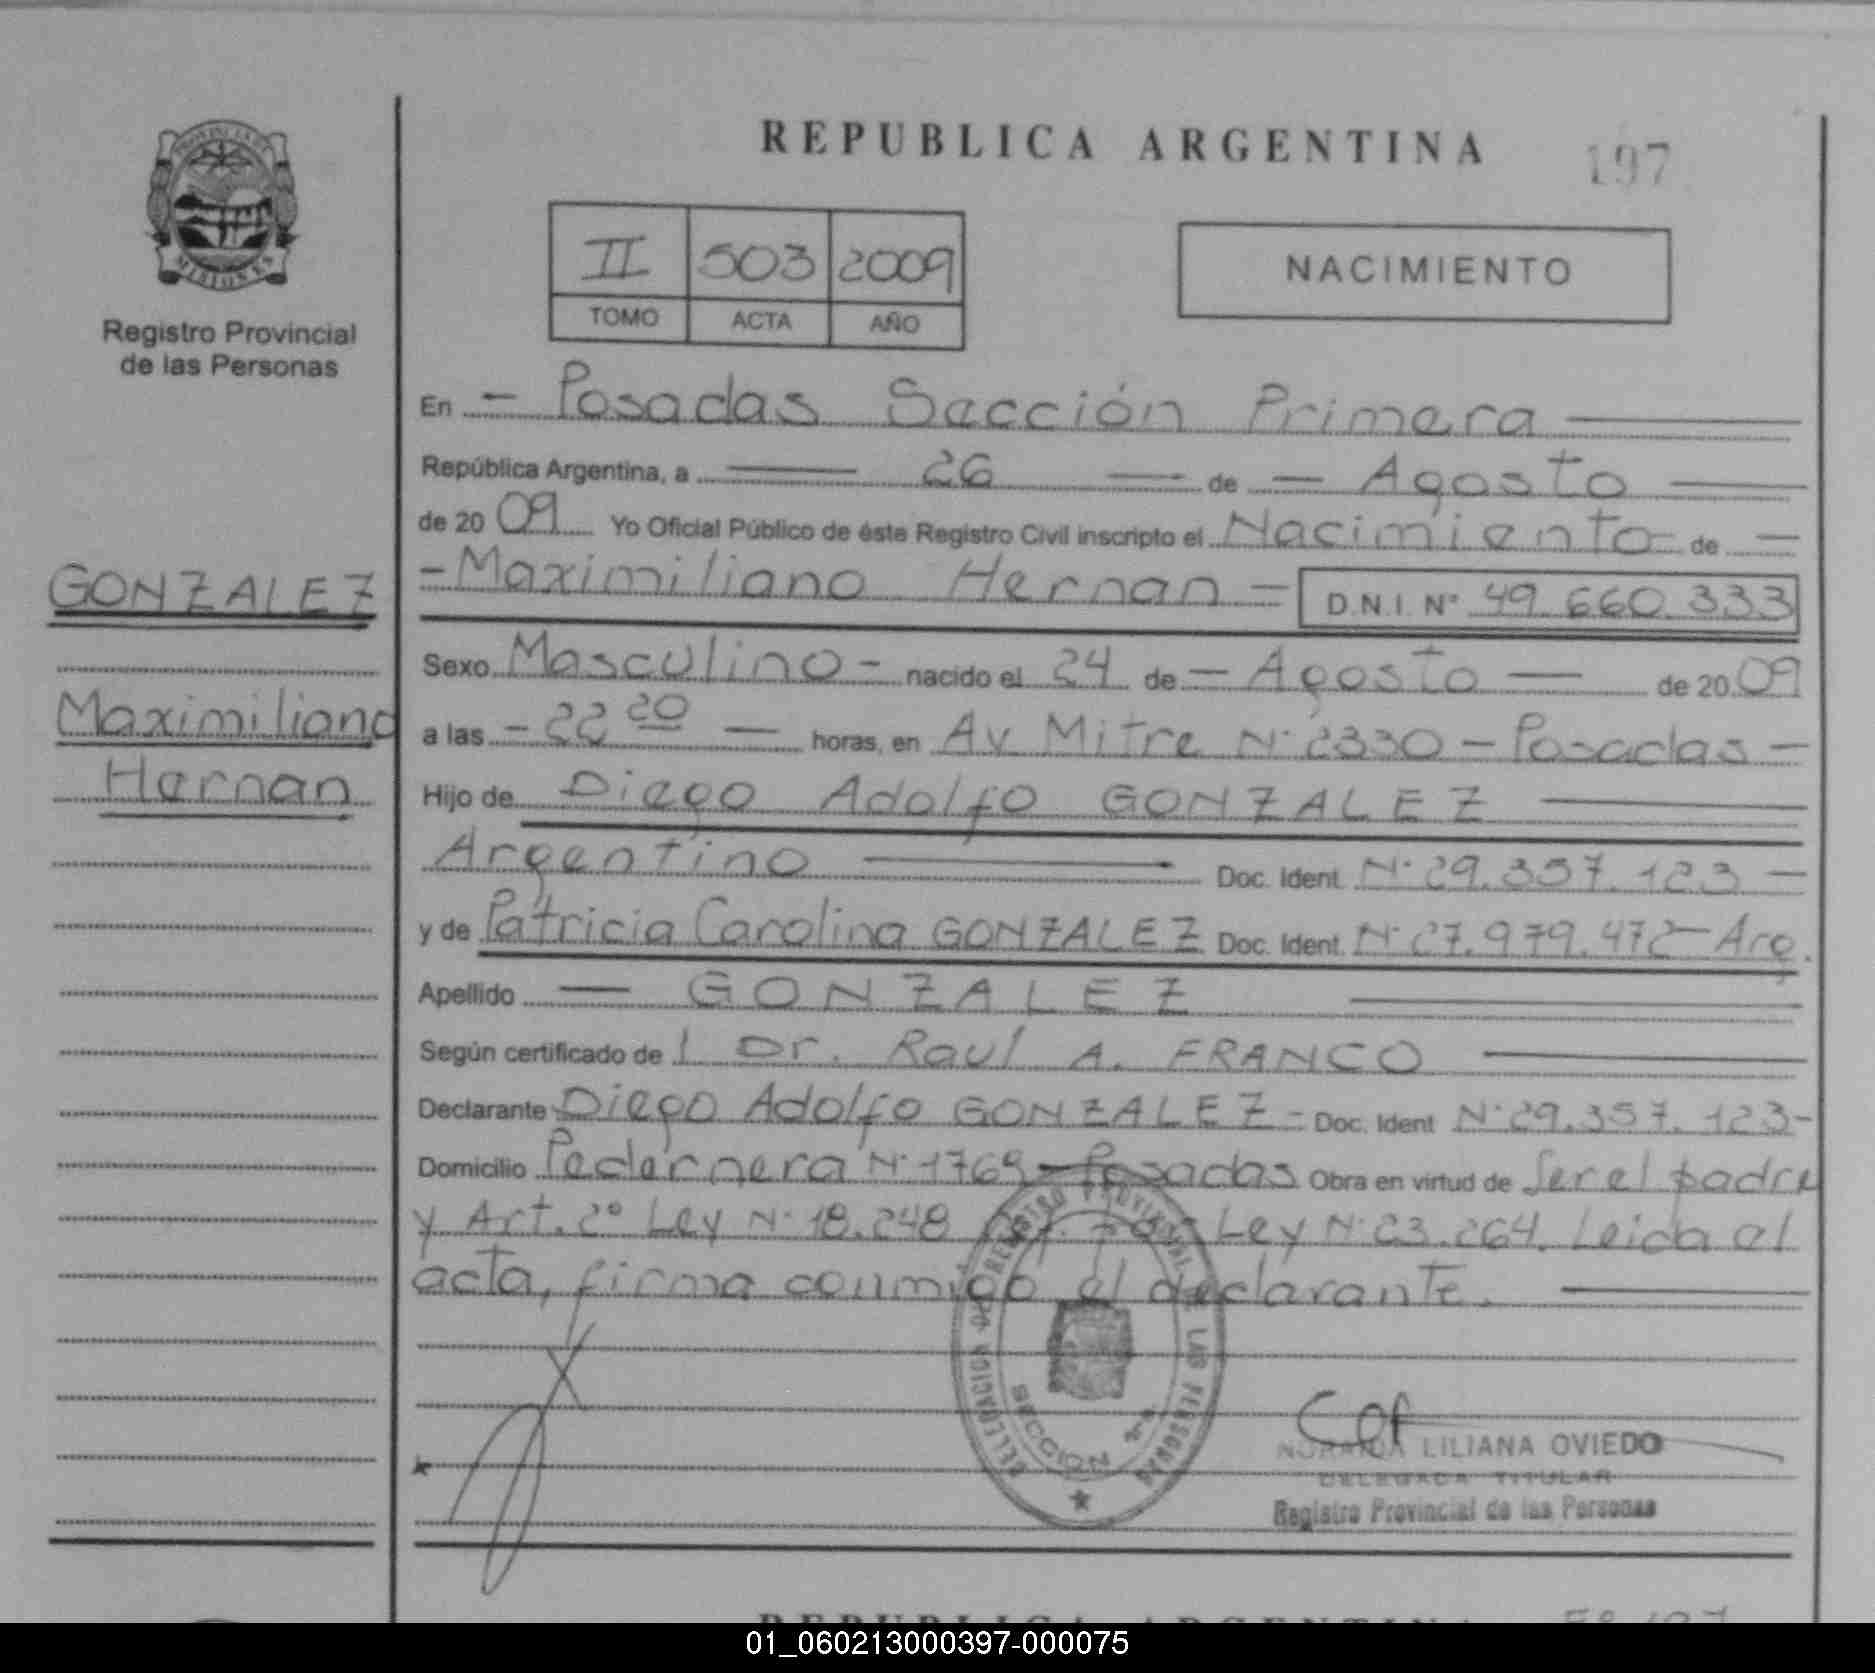 REPUBLICA ARGENTINA
197
PROVINCIA DE
MISIONES
Registro Provincial
de las Personas
II 503 2009
TOMO ACTA AÑO
NACIMIENTO
En - Posadas Sección Primera
República Argentina, a 26 de - Agosto
de 20 09 Yo Oficial Público de éste Registro Civil inscripto el Nacimiento de -
GONZALEZ
- Maximiliano Hernan - D.N.I. Nº 49.660.333
Sexo Masculino - nacido el 24 de - Agosto - de 20 09
Maximiliano
Hernan
a las - 22 20 - horas, en Av. Mitre Nº 2330 - Posadas -
Hijo de Diego Adolfo GONZALEZ
Argentino Doc. Ident. Nº 29.357.123 -
y de Patricia Carolina GONZALEZ Doc. Ident. Nº 27.979.472 - Arg.
Apellido - GONZALEZ
Según certificado de l Dr. Raul A. FRANCO
Declarante Diego Adolfo GONZALEZ - Doc. Ident Nº 29.357.123 -
Domicilio Pedernera Nº 1769 - Posadas Obra en virtud de Ser el padre
y Art. 2º Ley Nº 18.248 Ley Nº 23.264. Leida el
acta, firma conmigo el declarante.
DELEGACION REGISTRO PROVINCIAL DE LAS PERSONAS
SECCION
LILIANA OVIEDO
DELEGADA TITULAR
Registro Provincial de las Personas
REPUBLICA ARGENTINA
01_060213000397-000075